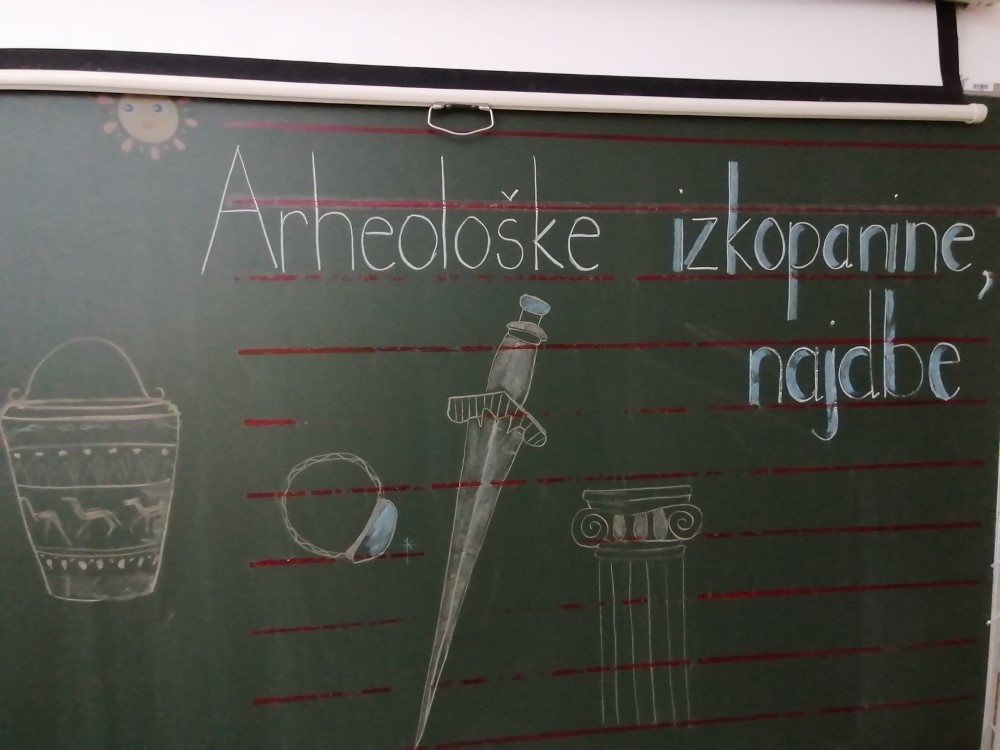 Arheološke izkopanine,
najdbe